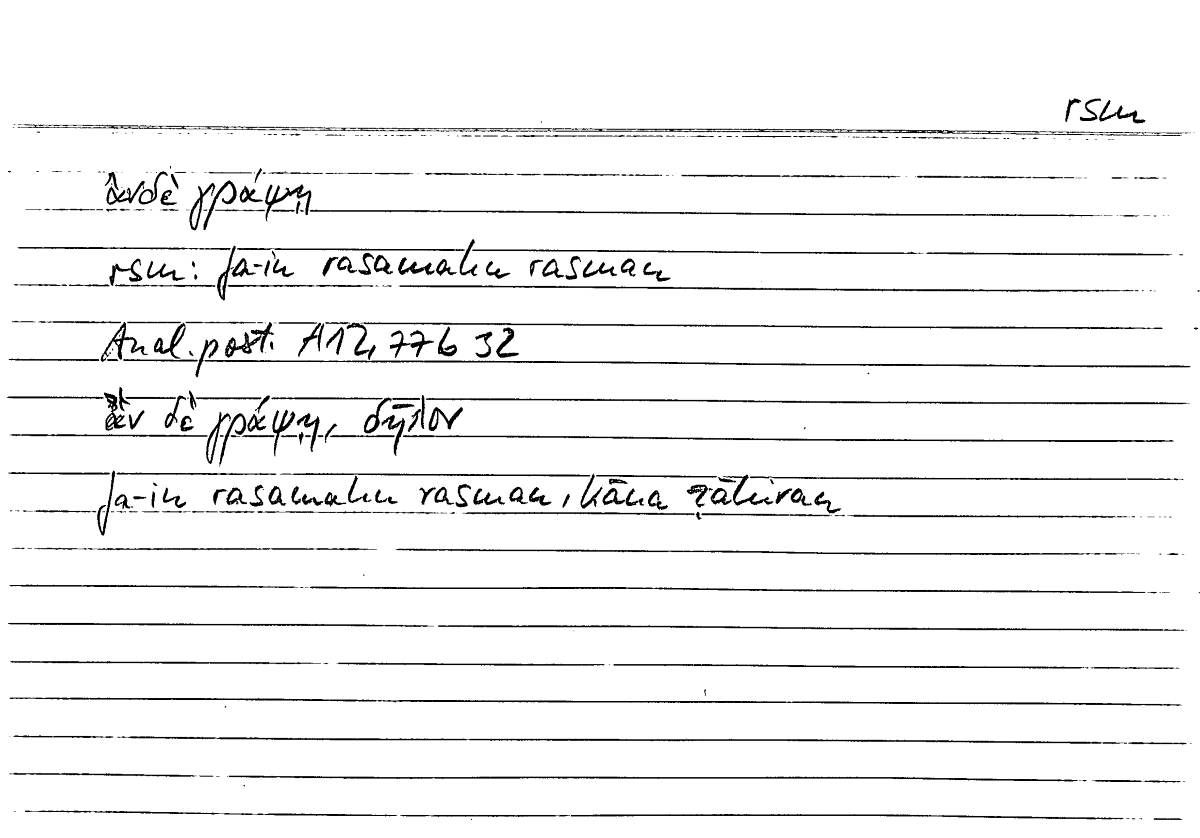 rsm
ἂνδὲ γράψῃ
rsm: fa-in rasamahu rasman
Anal. post. A12, 77b 32
ἂν δὲ γράψῃ, δῆλον
fa-in rasamahu rasman, kāna ẓāhiran